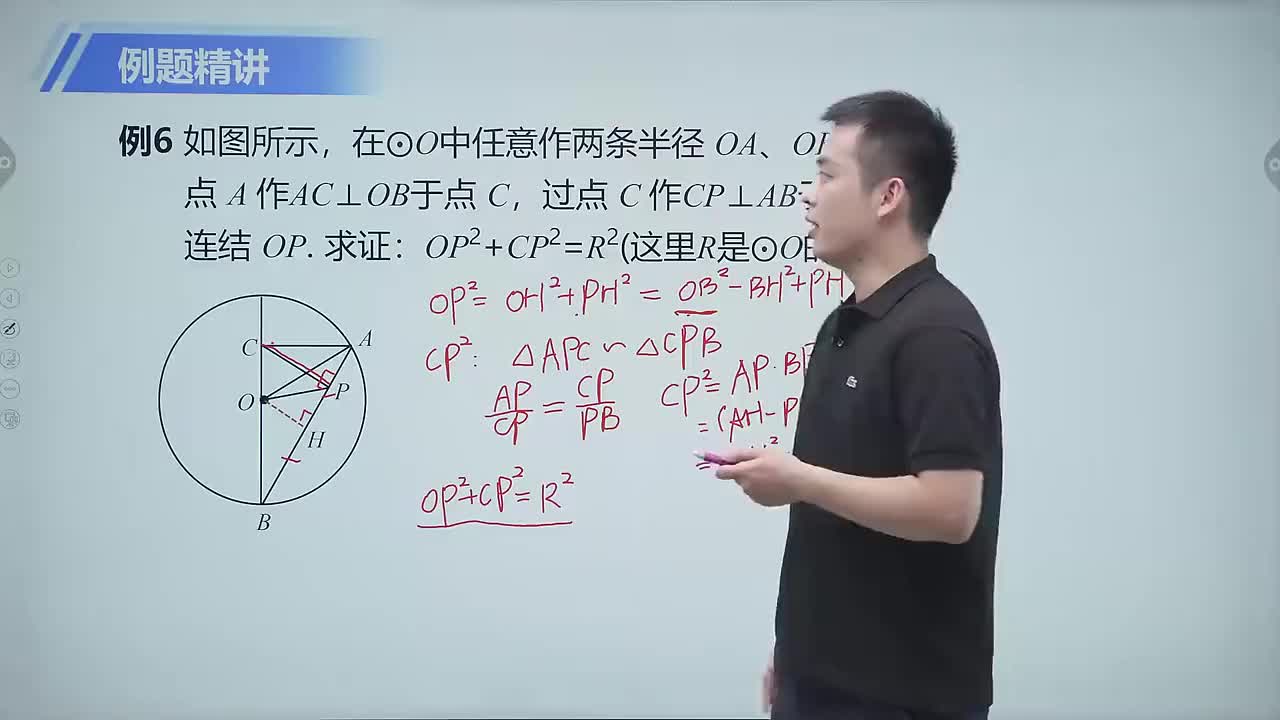 例题精讲
例6 如图所示，在⊙O中任意作两条半径 OA、
点 A 作AC⊥OB于点 C，过点 C 作CP⊥AB
连结 OP. 求证：OP²+CP²=R²(这里R是⊙O
OP²= OH²+PH² = OB²-BH²+PH
CP²: △APC∽△CPB
AP/CP = CP/PB
CP²= AP·
=(AH-
=
OP²+CP²=R²
C
A
O
P
H
B